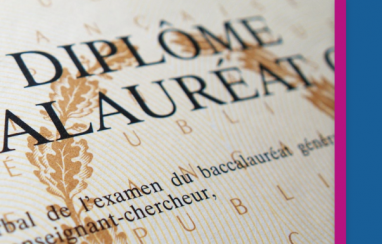 DIPLÔME
ALAURÉAT
rbal de l'examen du baccalauréat génér
enseignant-chercheur,